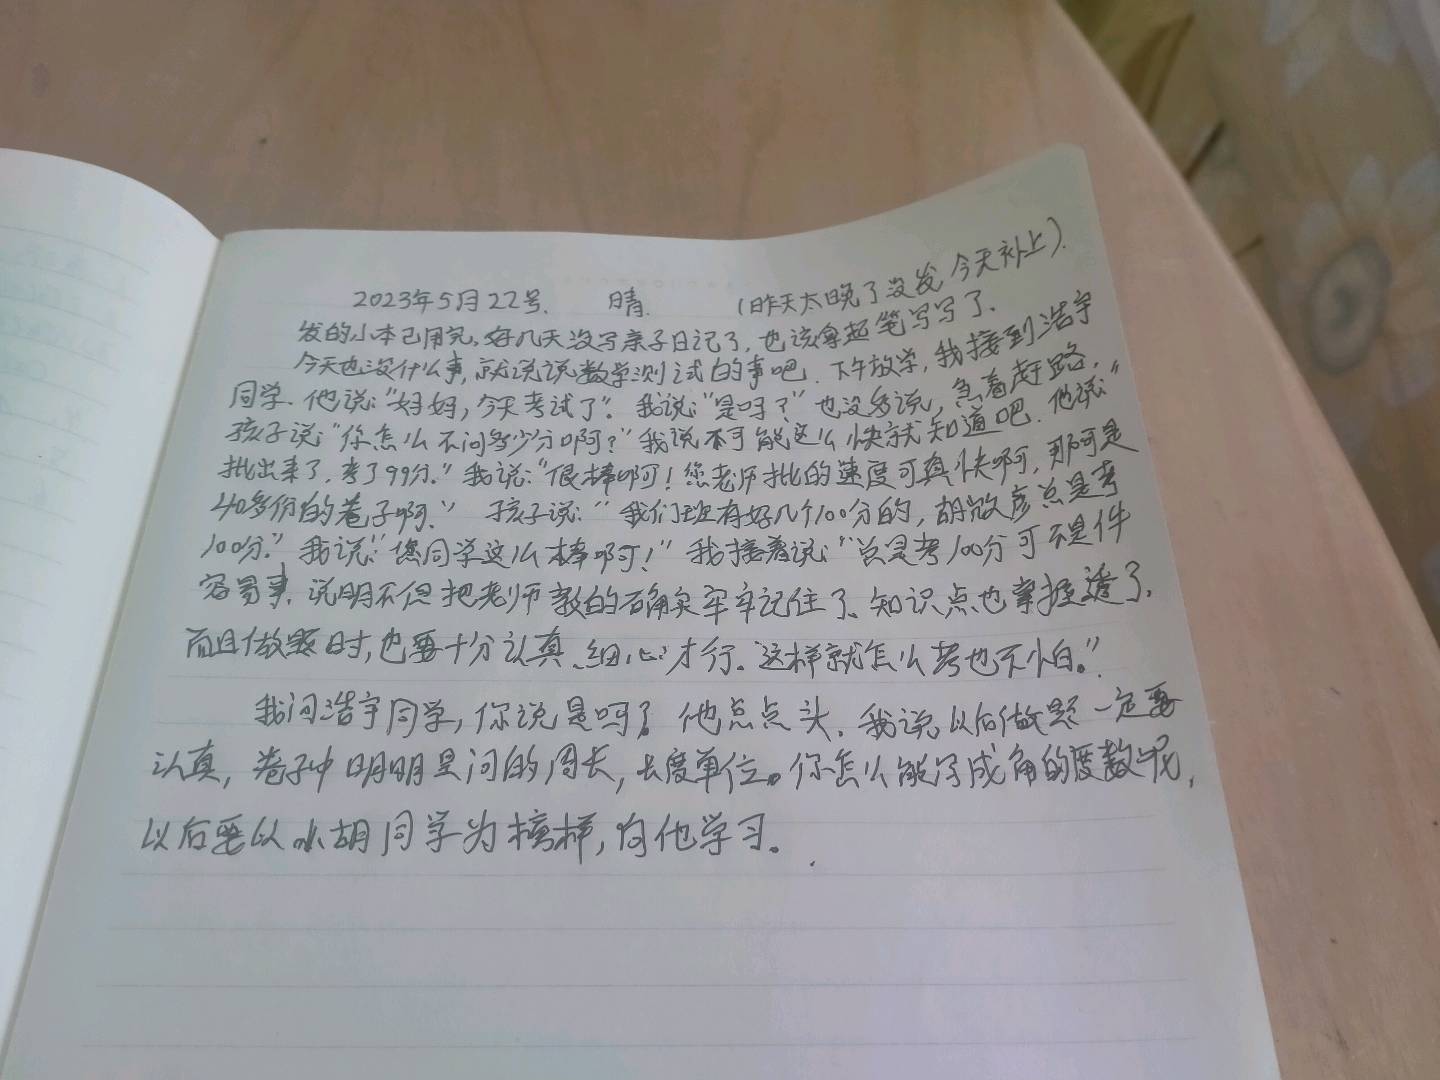 2023年5月22号. 晴. (昨天太晚了没发今天补上).
发的小本已用完,好几天没写亲子日记了,也该拿起笔写写了.
今天也没什么事,就说说数学测试的事吧.下午放学,我接到浩宇
同学.他说:"妈妈,今天考试了".我说:"是吗?"也没多说,急着赶路,
孩子说:"你怎么不问多少分啊?"我说不可能这么快就知道吧.他说:"
批出来了,考了99分."我说:"很棒啊!您老师批的速度可真快啊,那可是
40多份的卷子啊."孩子说:"我们班有好几个100分的,胡致彦总是考
100分."我说:"您同学这么棒啊!"我接着说:"总是考100分可不是件
容易事,说明不但把老师教的确实牢牢记住了、知识点也掌握透了,
而且做题时,也要十分认真、细心才行。这样就怎么考也不怕。"
我问浩宇同学,你说是吗?他点点头.我说,以后做题一定要
认真,卷子中明明是问的周长,长度单位。你怎么能写成角的度数呢,
以后要以小胡同学为榜样,向他学习。